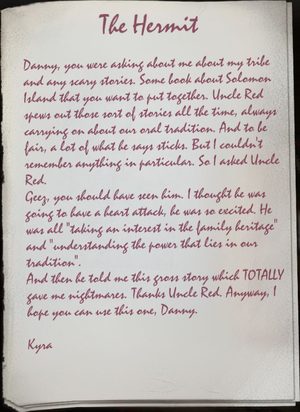 The Hermit
Danny, you were asking about me about my tribe
and any scary stories. Some book about Solomon
Island that you want to put together. Uncle Red
spews out those sort of stories all the time, always
carrying on about our oral tradition. And to be
fair, a lot of what he says sticks. But I couldn't
remember anything in particular. So I asked Uncle
Red.
Geez, you should have seen him. I thought he was
going to have a heart attack, he was so excited. He
was all "taking an interest in the family heritage"
and "understanding the power that lies in our
tradition".
And then he told me this gross story which TOTALLY
gave me nightmares. Thanks Uncle Red. Anyway, I
hope you can use this one, Danny.
Kyra